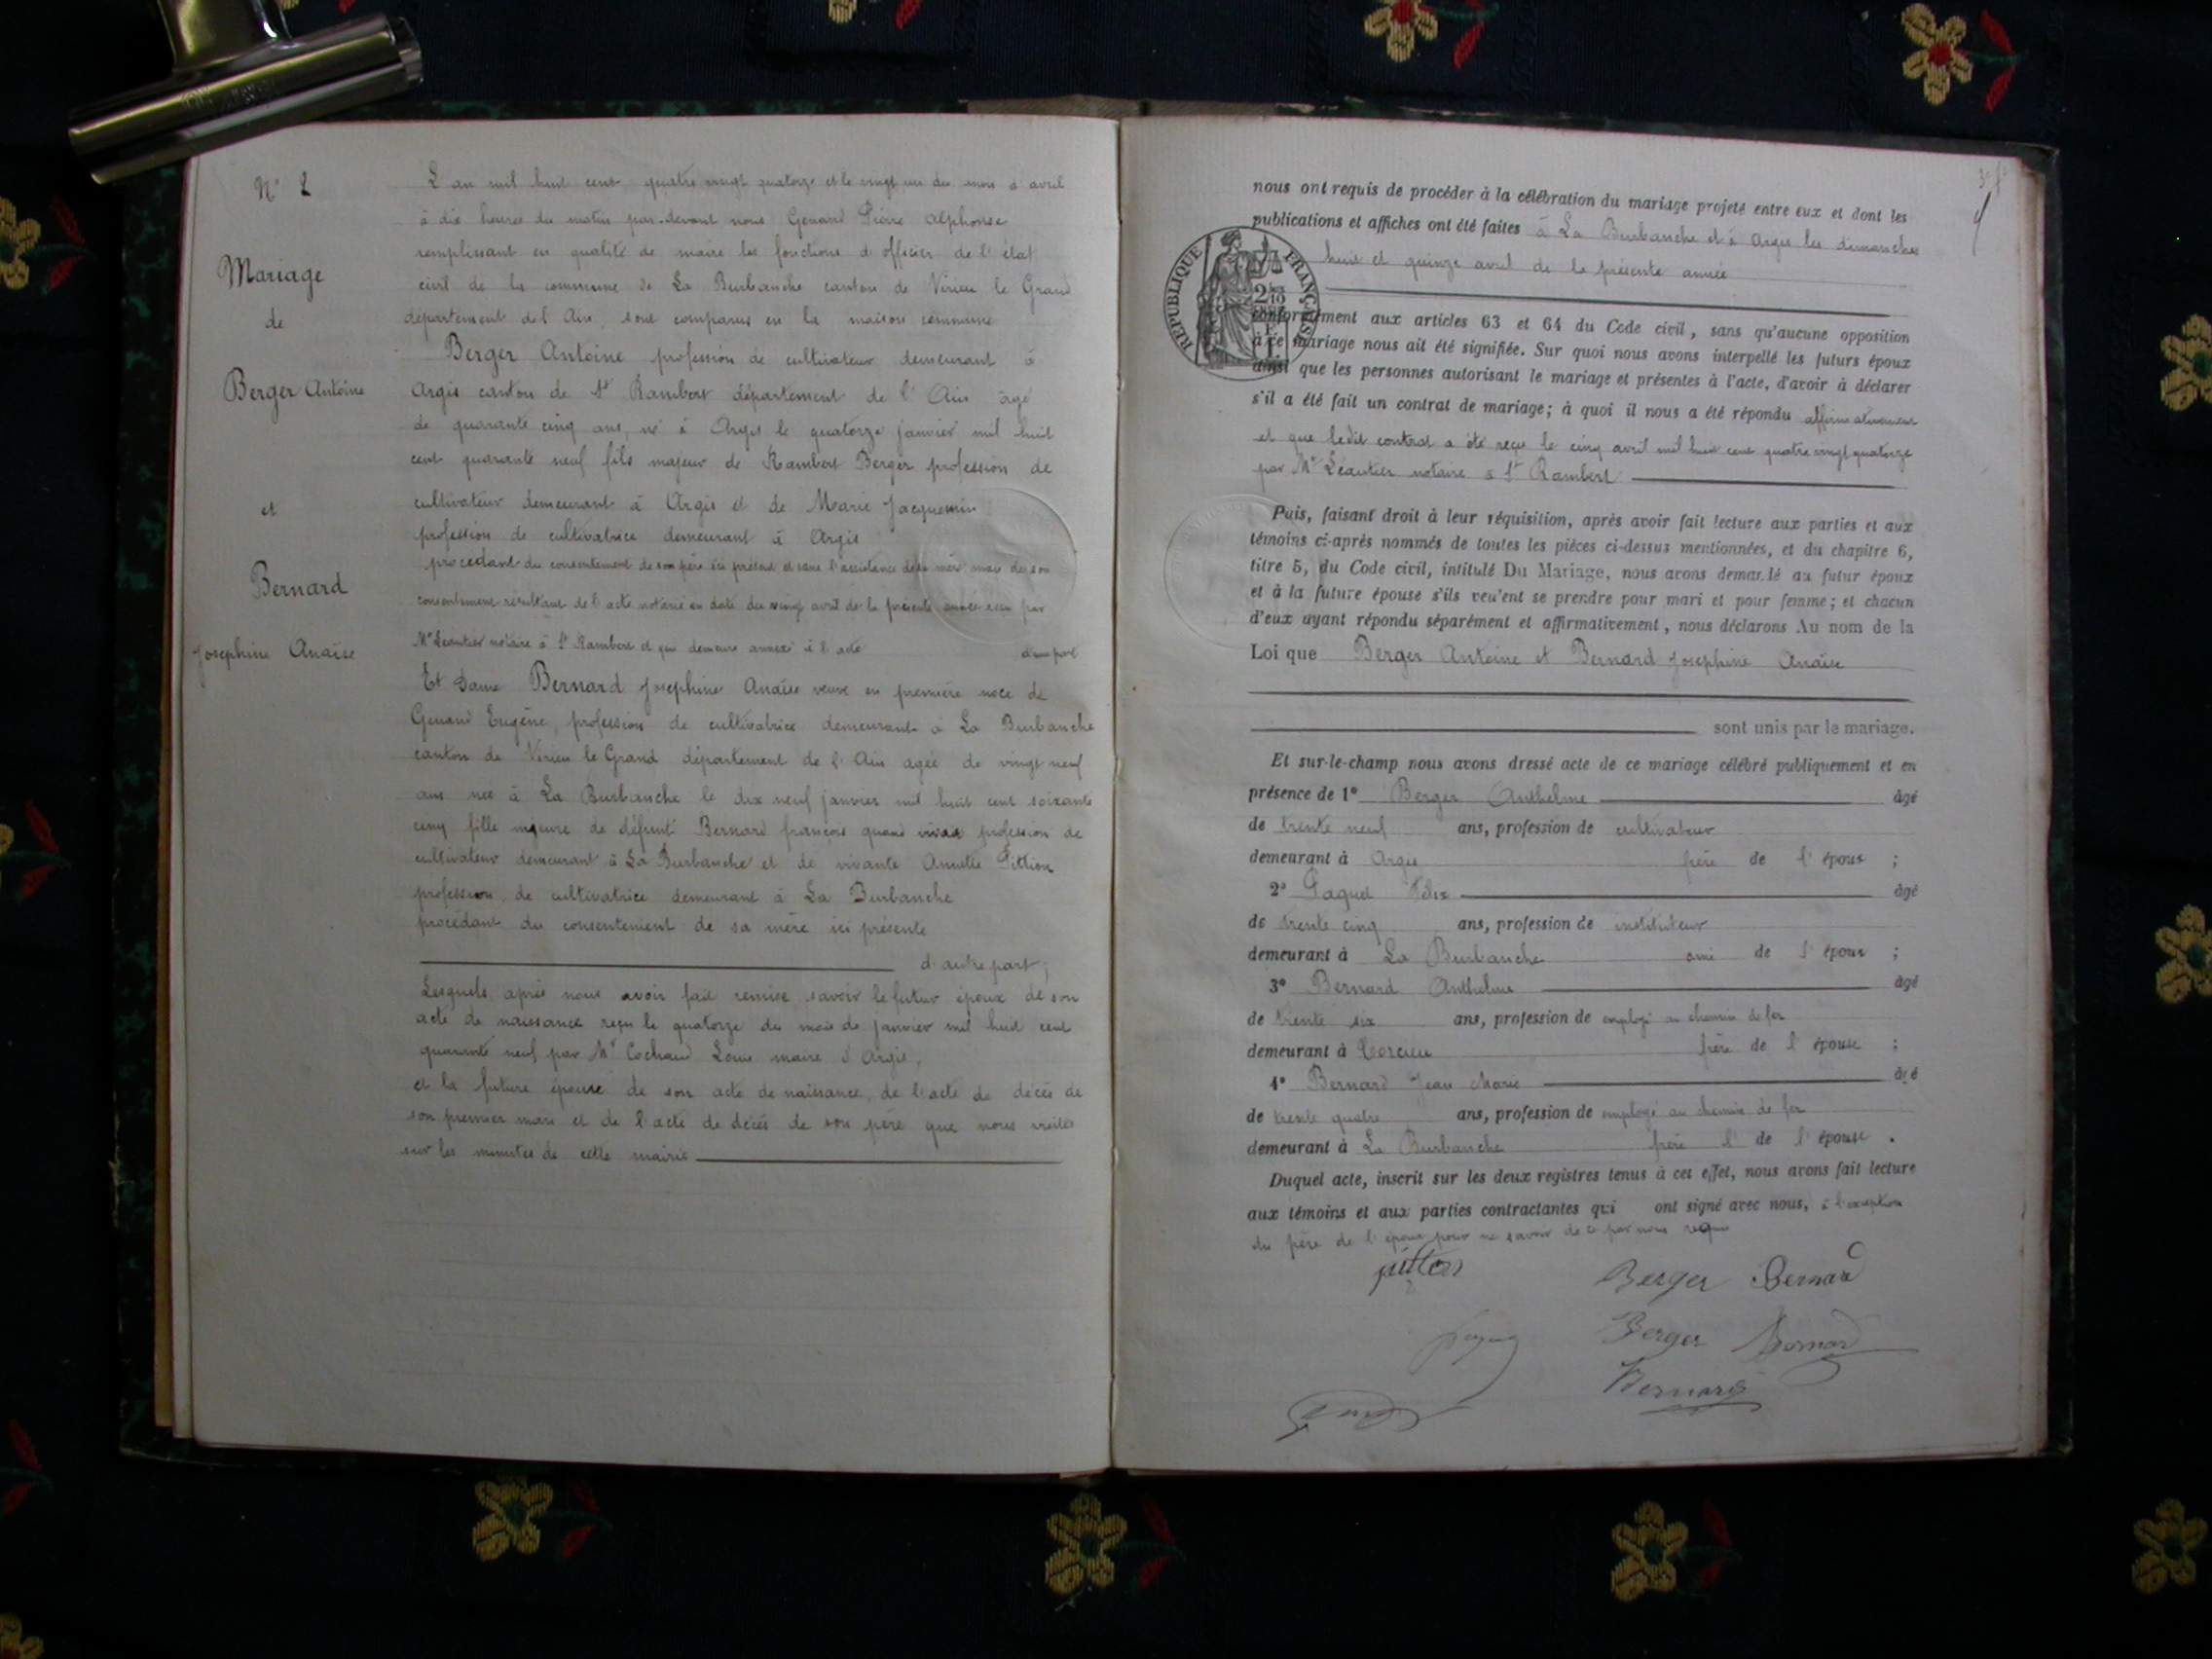 N° 2
Mariage
de
Berger Antoine
et
Bernard
Josephine Anaïse
L'an mil huit cent quatre vingt quatorze et le vingt un du mois d'avril
à dix heures du matin par-devant nous Genand Pierre Alphonse
remplissant en qualité de maire les fonctions d'officier de l'état
civil de la commune de La Burbanche canton de Virieu le Grand
département de l'Ain, sont comparus en la maison commune
Berger Antoine profession de cultivateur demeurant à
Argis canton de St Rambert département de l'Ain âgé
de quarante cinq ans, né à Argis le quatorze janvier mil huit
cent quarante neuf fils majeur de Rambert Berger profession de
cultivateur demeurant à Argis et de Marie Jacquemin
profession de cultivatrice demeurant à Argis
procédant du consentement de son père ici présent et sans l'assistance de sa mère mais de son
consentement résultant de l'acte notarié en date du vingt avril de la présente année reçu par
Me Léautier notaire à St Rambert et qui demeure annexé à l'acte d'une part
Et Dame Bernard Josephine Anaïse veuve en première noce de
Genand Eugène, profession de cultivatrice demeurant à La Burbanche
canton de Virieu le Grand département de l'Ain agée de vingt neuf
ans née à La Burbanche le dix neuf janvier mil huit cent soixante
cinq fille majeure de défunt Bernard françois quand vivait profession de
cultivateur demeurant à La Burbanche et de vivante Pittion
profession de cultivatrice demeurant à La Burbanche
procédant du consentement de sa mère ici présente
d'autre part;
Lesquels après nous avoir fait remise savoir le futur époux de son
acte de naissance reçu le quatorze du mois de janvier mil huit cent
quarante neuf par Mr Cochaud Louis maire d'Argis,
et la future épouse de son acte de naissance, de l'acte de décès de
son premier mari et de l'acte de décès de son père que nous
sur les minutes de cette mairie
nous ont requis de procéder à la célébration du mariage projeté entre eux et dont les
publications et affiches ont été faites à La Burbanche et à Argis les dimanches
huit et quinze avril de la présente année
RÉPUBLIQUE FRANÇAISE
conformément aux articles 63 et 64 du Code civil, sans qu'aucune opposition
à ce mariage nous ait été signifiée. Sur quoi nous avons interpellé les futurs époux
ainsi que les personnes autorisant le mariage et présentes à l'acte, d'avoir à déclarer
s'il a été fait un contrat de mariage; à quoi il nous a été répondu affirmativement
et que ledit contrat a été reçu le cinq avril mil huit cent quatre vingt quatorze
par Me Léautier notaire à St Rambert
Puis, faisant droit à leur réquisition, après avoir fait lecture aux parties et aux
témoins ci-après nommés de toutes les pièces ci-dessus mentionnées, et du chapitre 6,
titre 5, du Code civil, intitulé Du Mariage, nous avons demandé au futur époux
et à la future épouse s'ils veulent se prendre pour mari et pour femme; et chacun
d'eux ayant répondu séparément et affirmativement, nous déclarons Au nom de la
Loi que Berger Antoine et Bernard Josephine Anaïse
sont unis par le mariage.
Et sur-le-champ nous avons dressé acte de ce mariage célébré publiquement et en
présence de 1° Berger Anthelme âgé
de trente neuf ans, profession de cultivateur
demeurant à Argis frère de l'époux ;
2° Paquet Félix âgé
de trente cinq ans, profession de instituteur
demeurant à La Burbanche ami de l'époux ;
3° Bernard Anthelme âgé
de trente six ans, profession de employé au chemin de fer
demeurant à Torcieu frère de l'épouse ;
4° Bernard Jean Marie âgé
de trente quatre ans, profession de employé au chemin de fer
demeurant à La Burbanche frère de l'épouse .
Duquel acte, inscrit sur les deux registres tenus à cet effet, nous avons fait lecture
aux témoins et aux parties contractantes qui ont signé avec nous, à l'exception
du père de l'époux pour ne savoir de ce par nous requis
pittion
Berger Bernard
Berger Bernard
Bernard